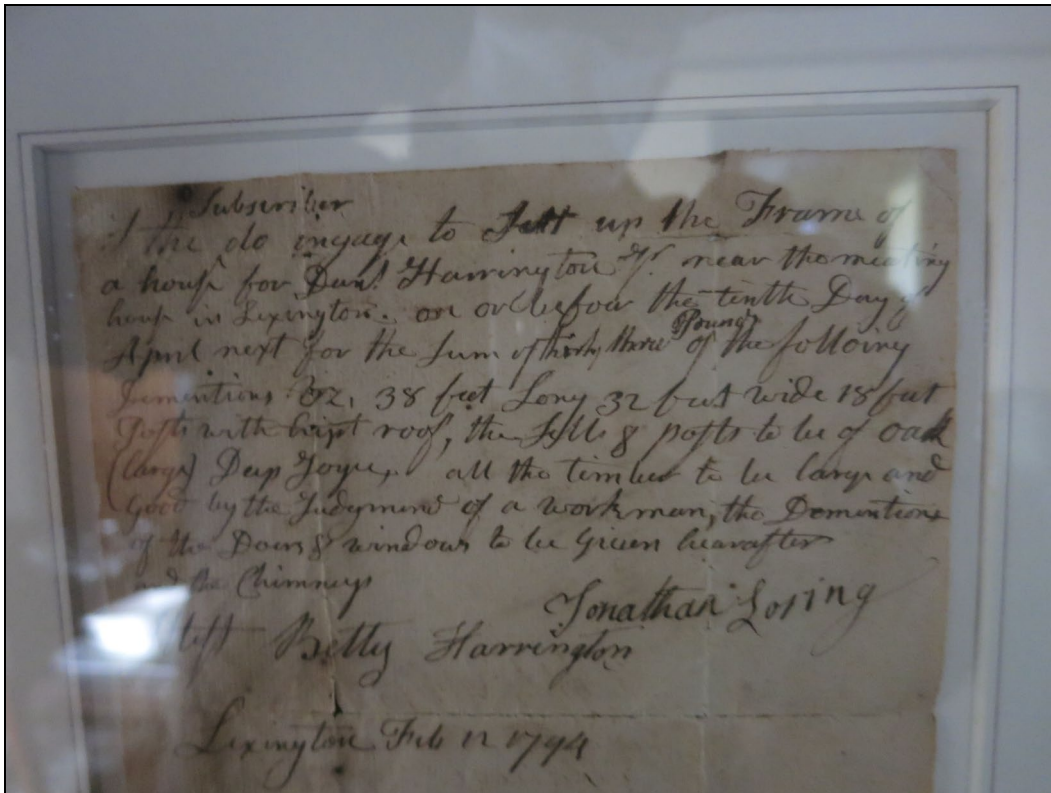 Subscriber
I the do ingage to Sett up the Frame of
a house for Danl. Harrington Jr. near the meeting
house in Lexington. on or before the tenth Day of
Pounds
April next for the Sum of thirty three of the following
Dementions 38 feet Long 32 feet wide 18 feet
Posts with hipt roof, the Sills & posts to be of oak
(large) Deep all the timber to be large and
Good by the Judgment of a workman, the Dementions
of the Doers & windows to be Given hearafter
and the Chimneys
Jonathan Loring
test Betty Harrington
Lexington Feb 12 1794